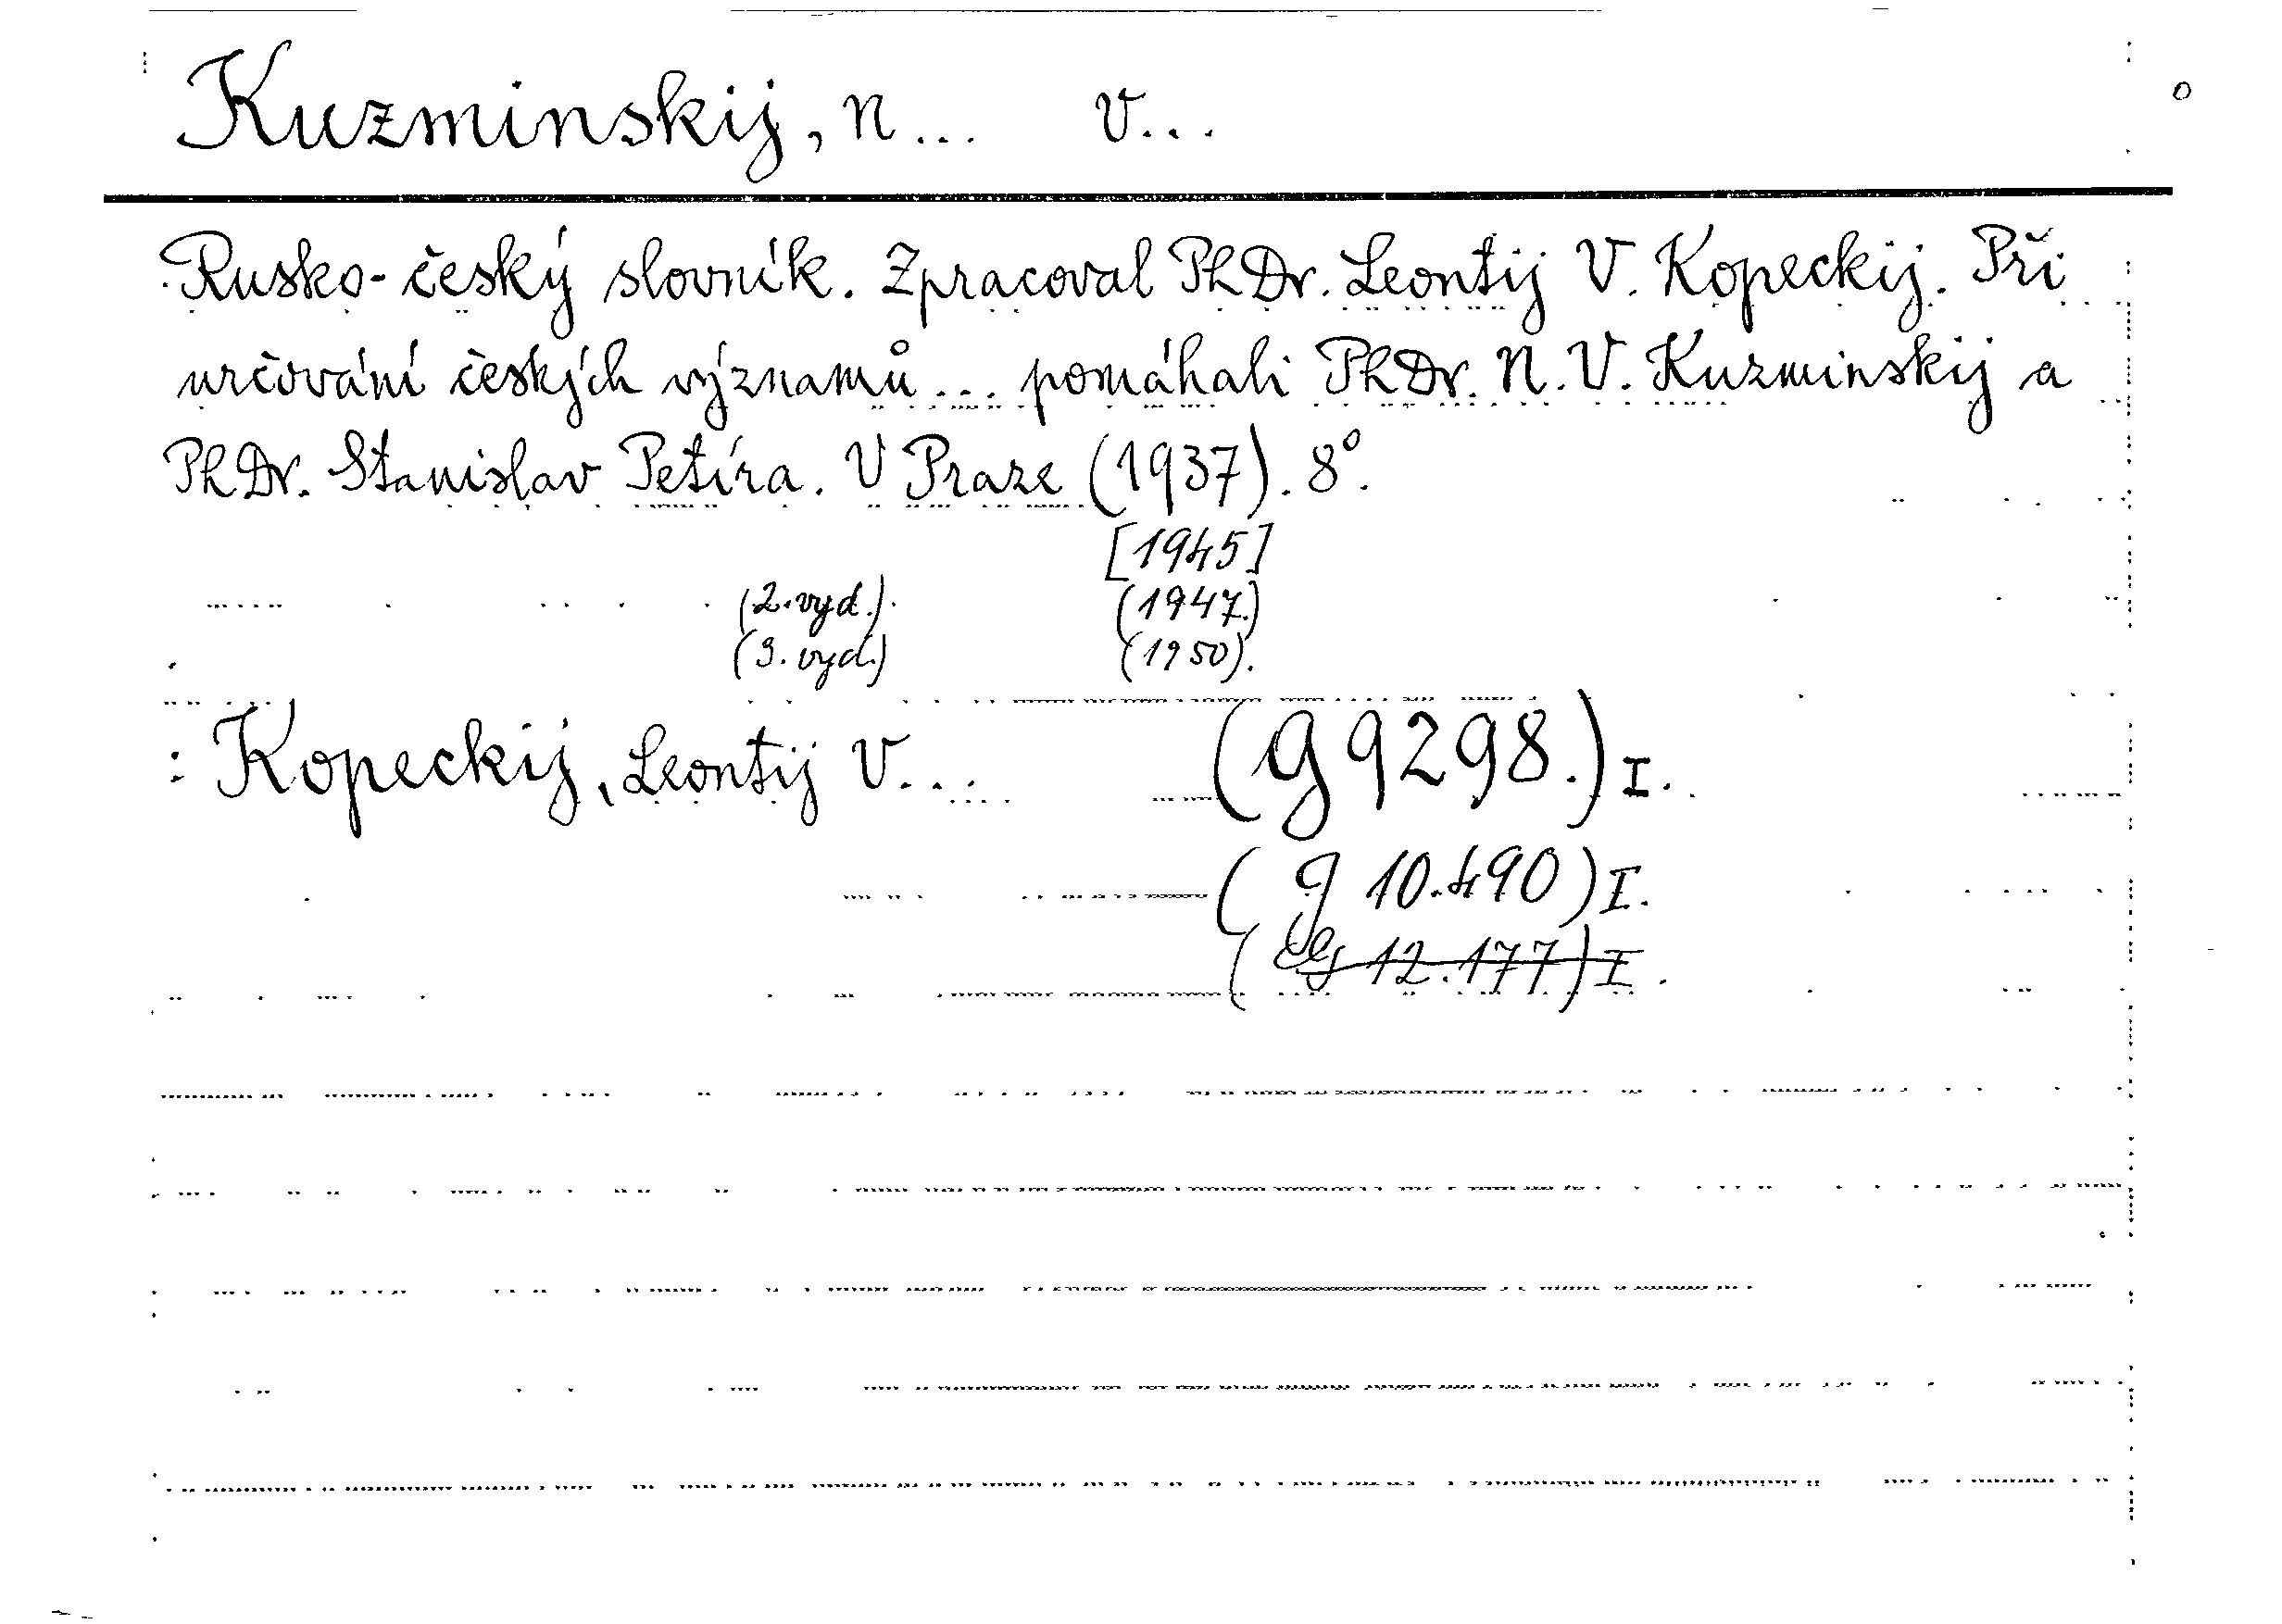 Kuzminskij, N... V...
Rusko-český slovník. Zpracoval PhDr. Leontij V. Kopeckij. Při
určování českých významů... pomáhali PhDr. N. V. Kuzminskij a
PhDr. Stanislav Petíra. V Praze (1937). 8°.
[1945]
(2. vyd.) (1947.)
(3. vyd.) (1950).
: Kopeckij, Leontij V... (g 9298.) I.
(g 10.490) I.
12.177) I.